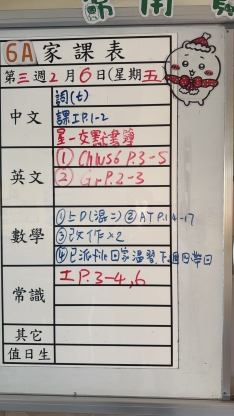 常用
6A家課表
第三週2月6日(星期五)
中文
詞(七)
課工P.1-2
星一交默書簿
英文
① Ch1U5&6 P.3-5
② GrP.2-3
數學
①5D(混二) ② AT P.14-17
③改作x2
④已派卷回家溫習,下週四帶回
常識
工P.3-4,6
其它
值日生